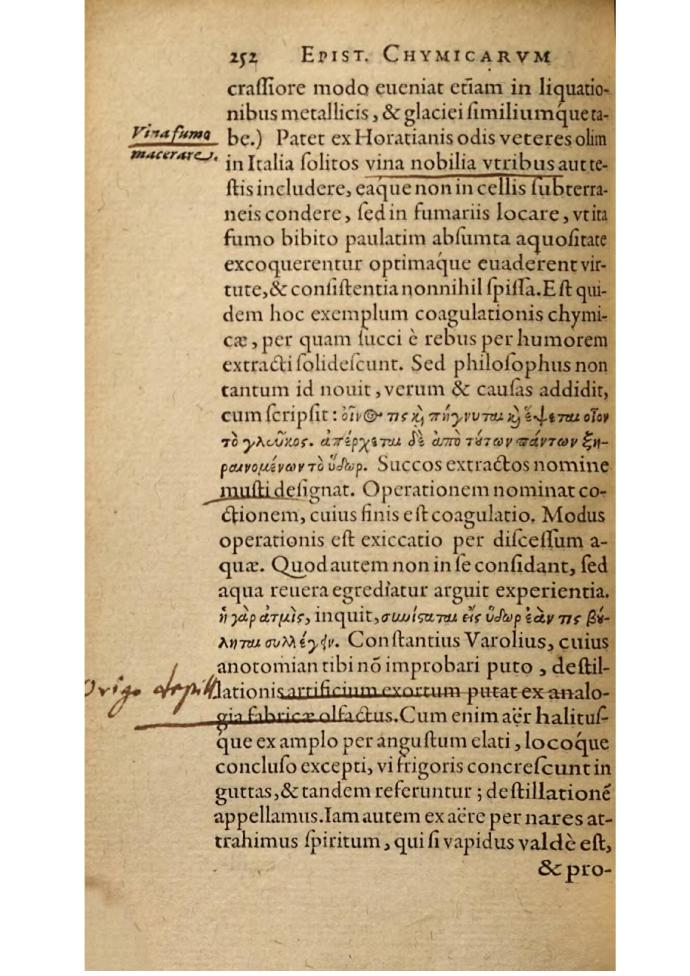 252 EPIST. CHYMICARVM
crassiore modo eueniat etiam in liquatio-
nibus metallicis, & glaciei similiumq́ue ta-
Vina fumo
macerare.
be.) Patet ex Horatianis odis veteres olim
in Italia solitos vina nobilia vtribus aut te-
stis includere, eaq́ue non in cellis subterra-
neis condere, sed in fumariis locare, vt ita
fumo bibito paulatim absumta aquositate
excoquerentur optimaq́ue euaderent vir-
tute, & consistentia nonnihil spissa. Est qui-
dem hoc exemplum coagulationis chymi-
cæ, per quam succi è rebus per humorem
extracti solidescunt. Sed philosophus non
tantum id nouit, verum & causas addidit,
cum scripsit: οἶνος τις κỳ πήγνυται κỳ ἕψεται οἷον
τὸ γλεῦκος. ἀπέρχεται δὲ ἀπὸ τούτων πάντων ξη-
ραινομένων τὸ ὕδωρ. Succos extractos nomine
musti designat. Operationem nominat co-
ctionem, cuius finis est coagulatio. Modus
operationis est exiccatio per discessum a-
quæ. Quod autem non in se considant, sed
aqua reuera egrediatur arguit experientia.
ἡ γὰρ ἀτμὶς, inquit, συνίσταται εἰς ὕδωρ ἐὰν τις βού-
ληται συλλέγειν. Constantius Varolius, cuius
anotomian tibi nō improbari puto, destil-
Origo
lationis artificium exortum putat ex analo-
gia fabricæ olfactus. Cum enim aër halitus-
que ex amplo per angustum elati, locoq́ue
concluso excepti, vi frigoris concrescunt in
guttas, & tandem referuntur; destillationē
appellamus. Iam autem ex aëre per nares at-
trahimus spiritum, qui si vapidus valdè est,
& pro-